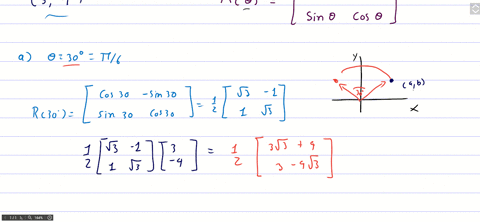 R(θ) =
Sin θ Cos θ
a) θ = 30° = π/6
y
(a,b)
x
R(30°) = [ Cos 30 -Sin 30 ; Sin 30 Cos 30 ] = 1/2 [ √3 -1 ; 1 √3 ]
1/2 [ √3 -1 ; 1 √3 ] [ 3 ; -4 ] = 1/2 [ 3√3 + 4 ; 3 - 4√3 ]